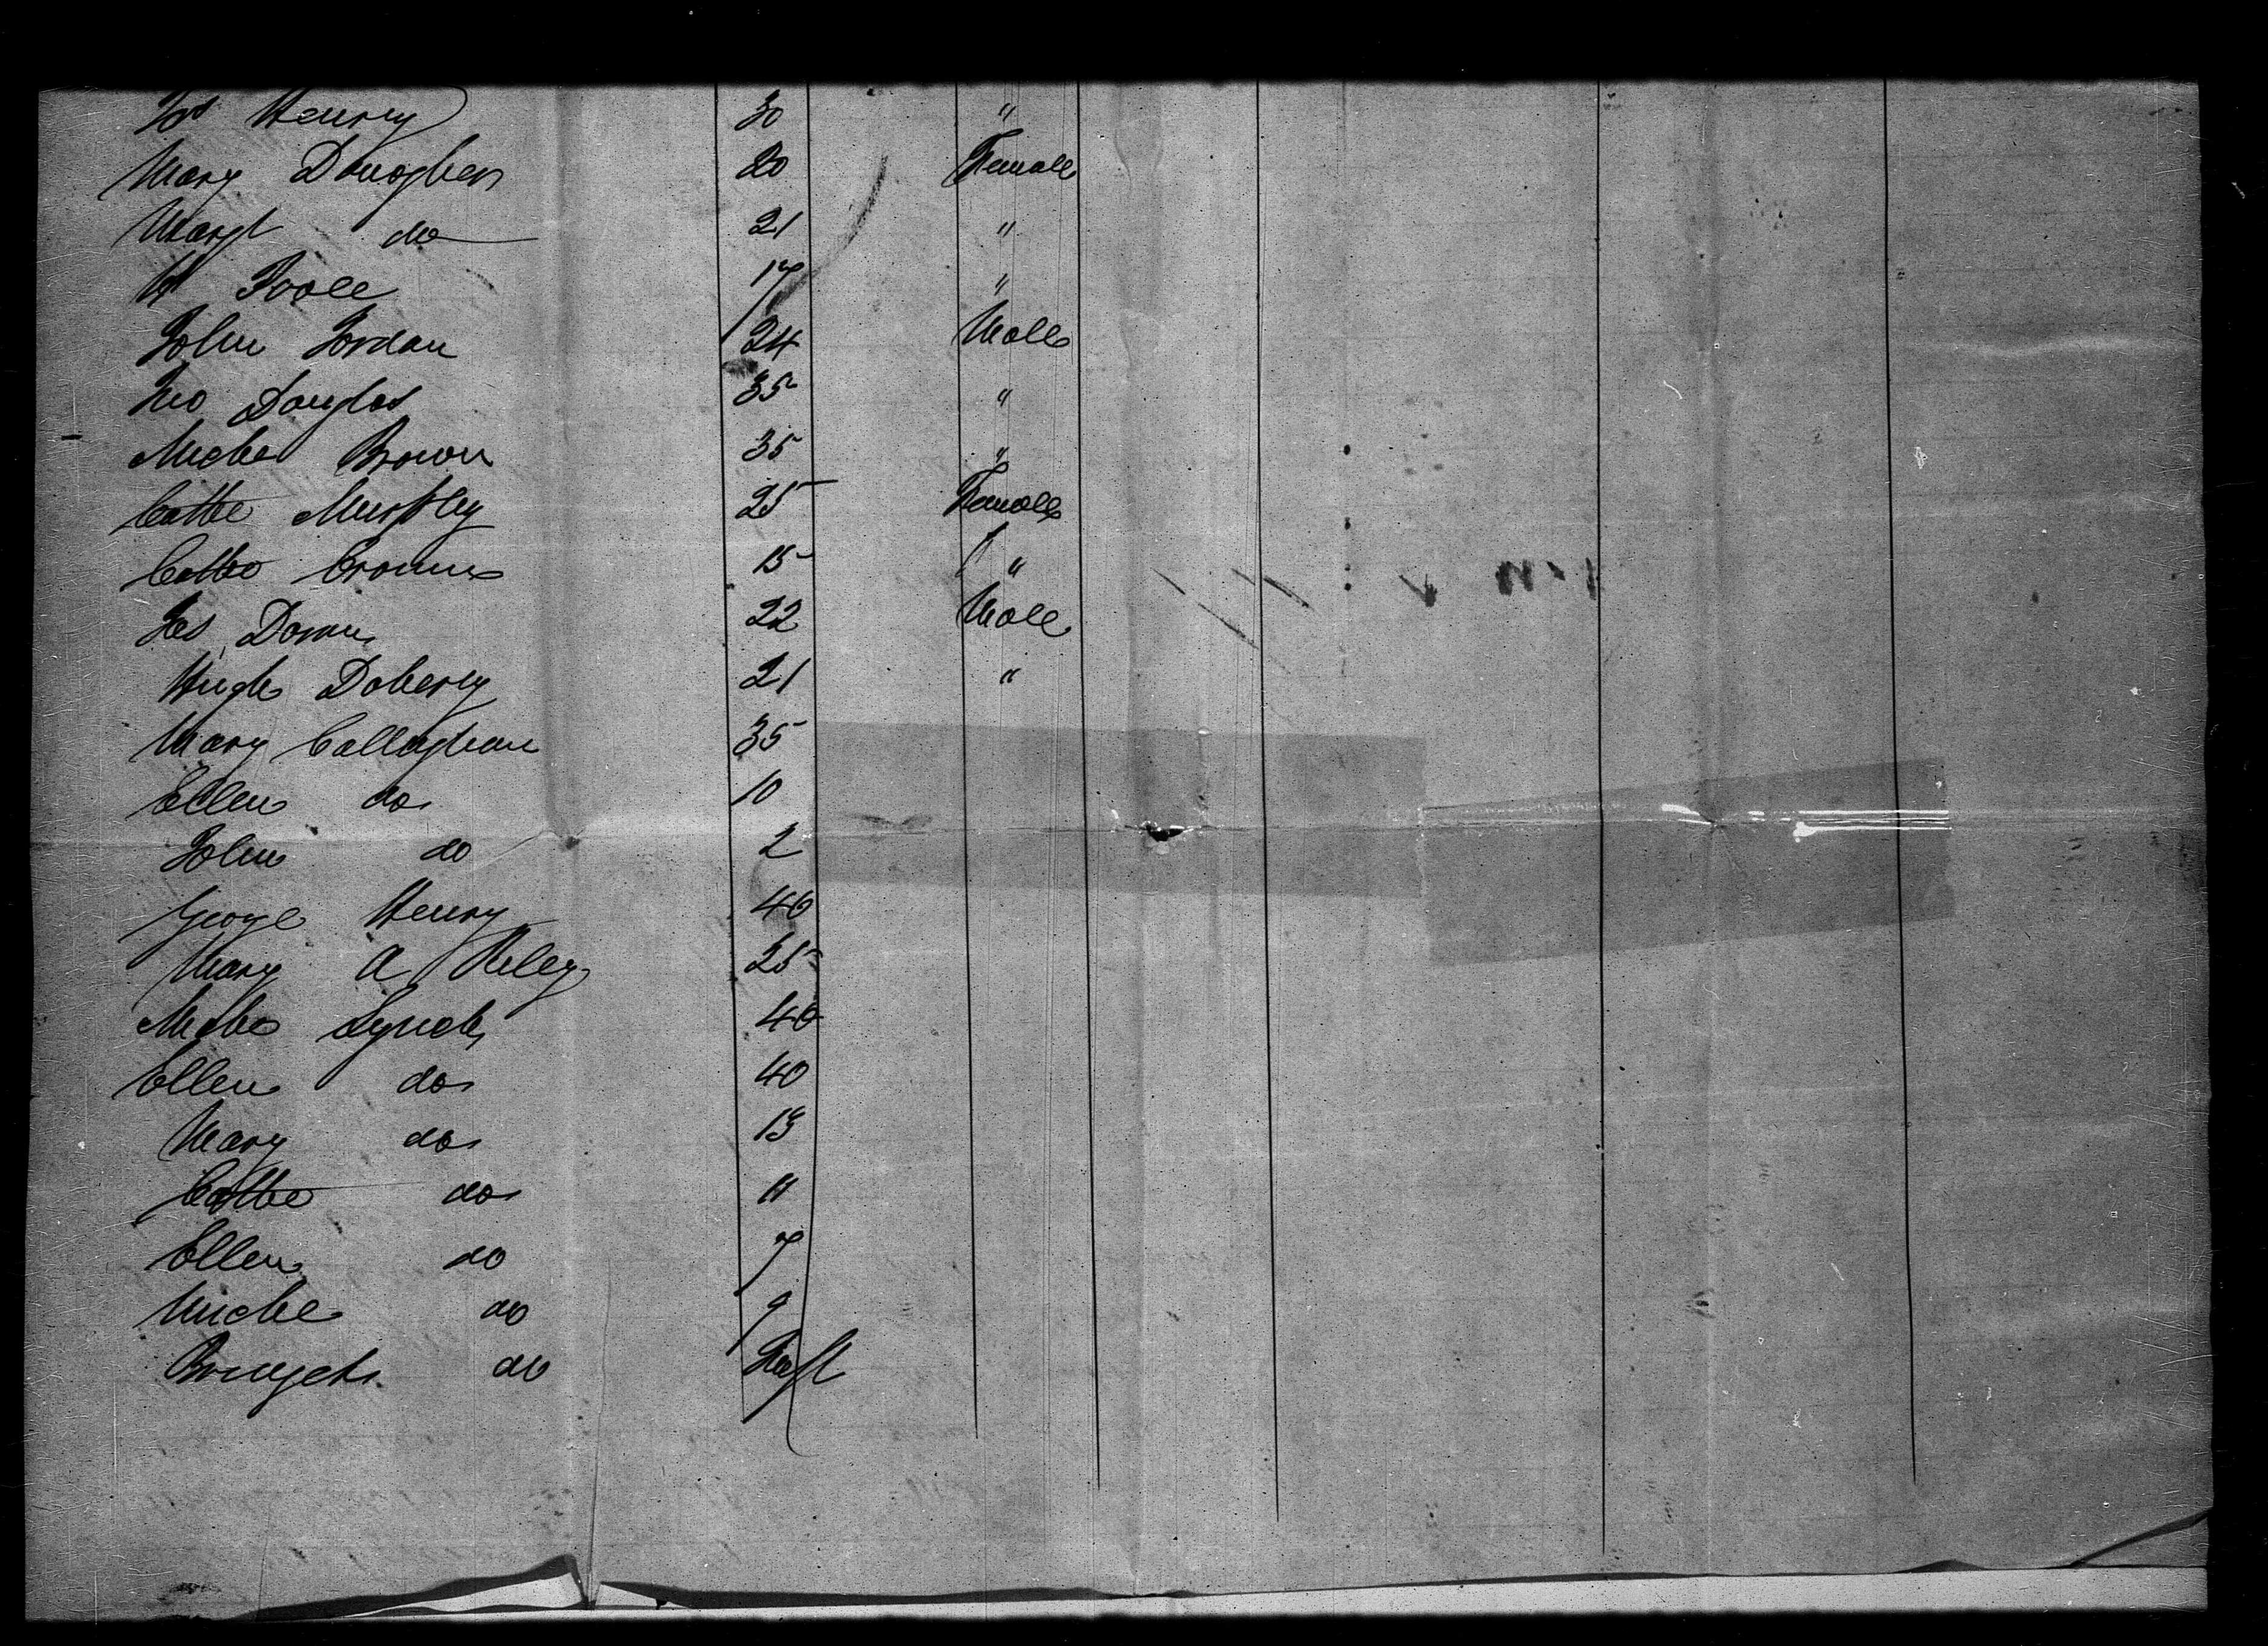 Jas Henry 30 "
Mary Donoghen 20 Female
Margt do 21 "
Toole 17 "
John Jordan 24 Male
Jno Douglas 35 "
Michl Brown 35 "
Cathe Murphy 25 Female
Cathe 15 "
Jas 22 Male
Hugh Doherty 21 "
Mary Callaghan 35
Ellen do 10
John do 2
George Henry 40
Mary A Riley 25
Michl Lynch 40
Ellen do 40
Mary do 13
Cathe do 11
Ellen do 7
Michl do 9
do